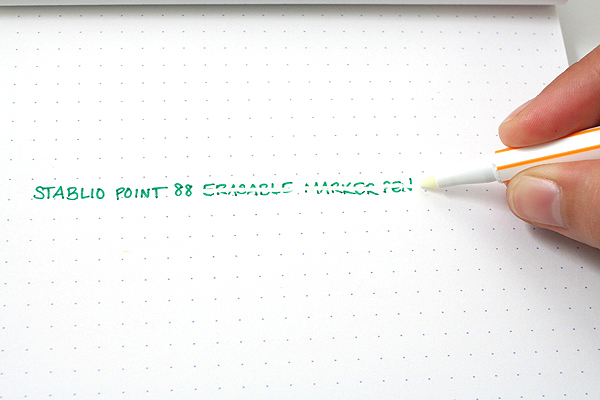 STABLIO POINT 88 ERASABLE MARKER PEN